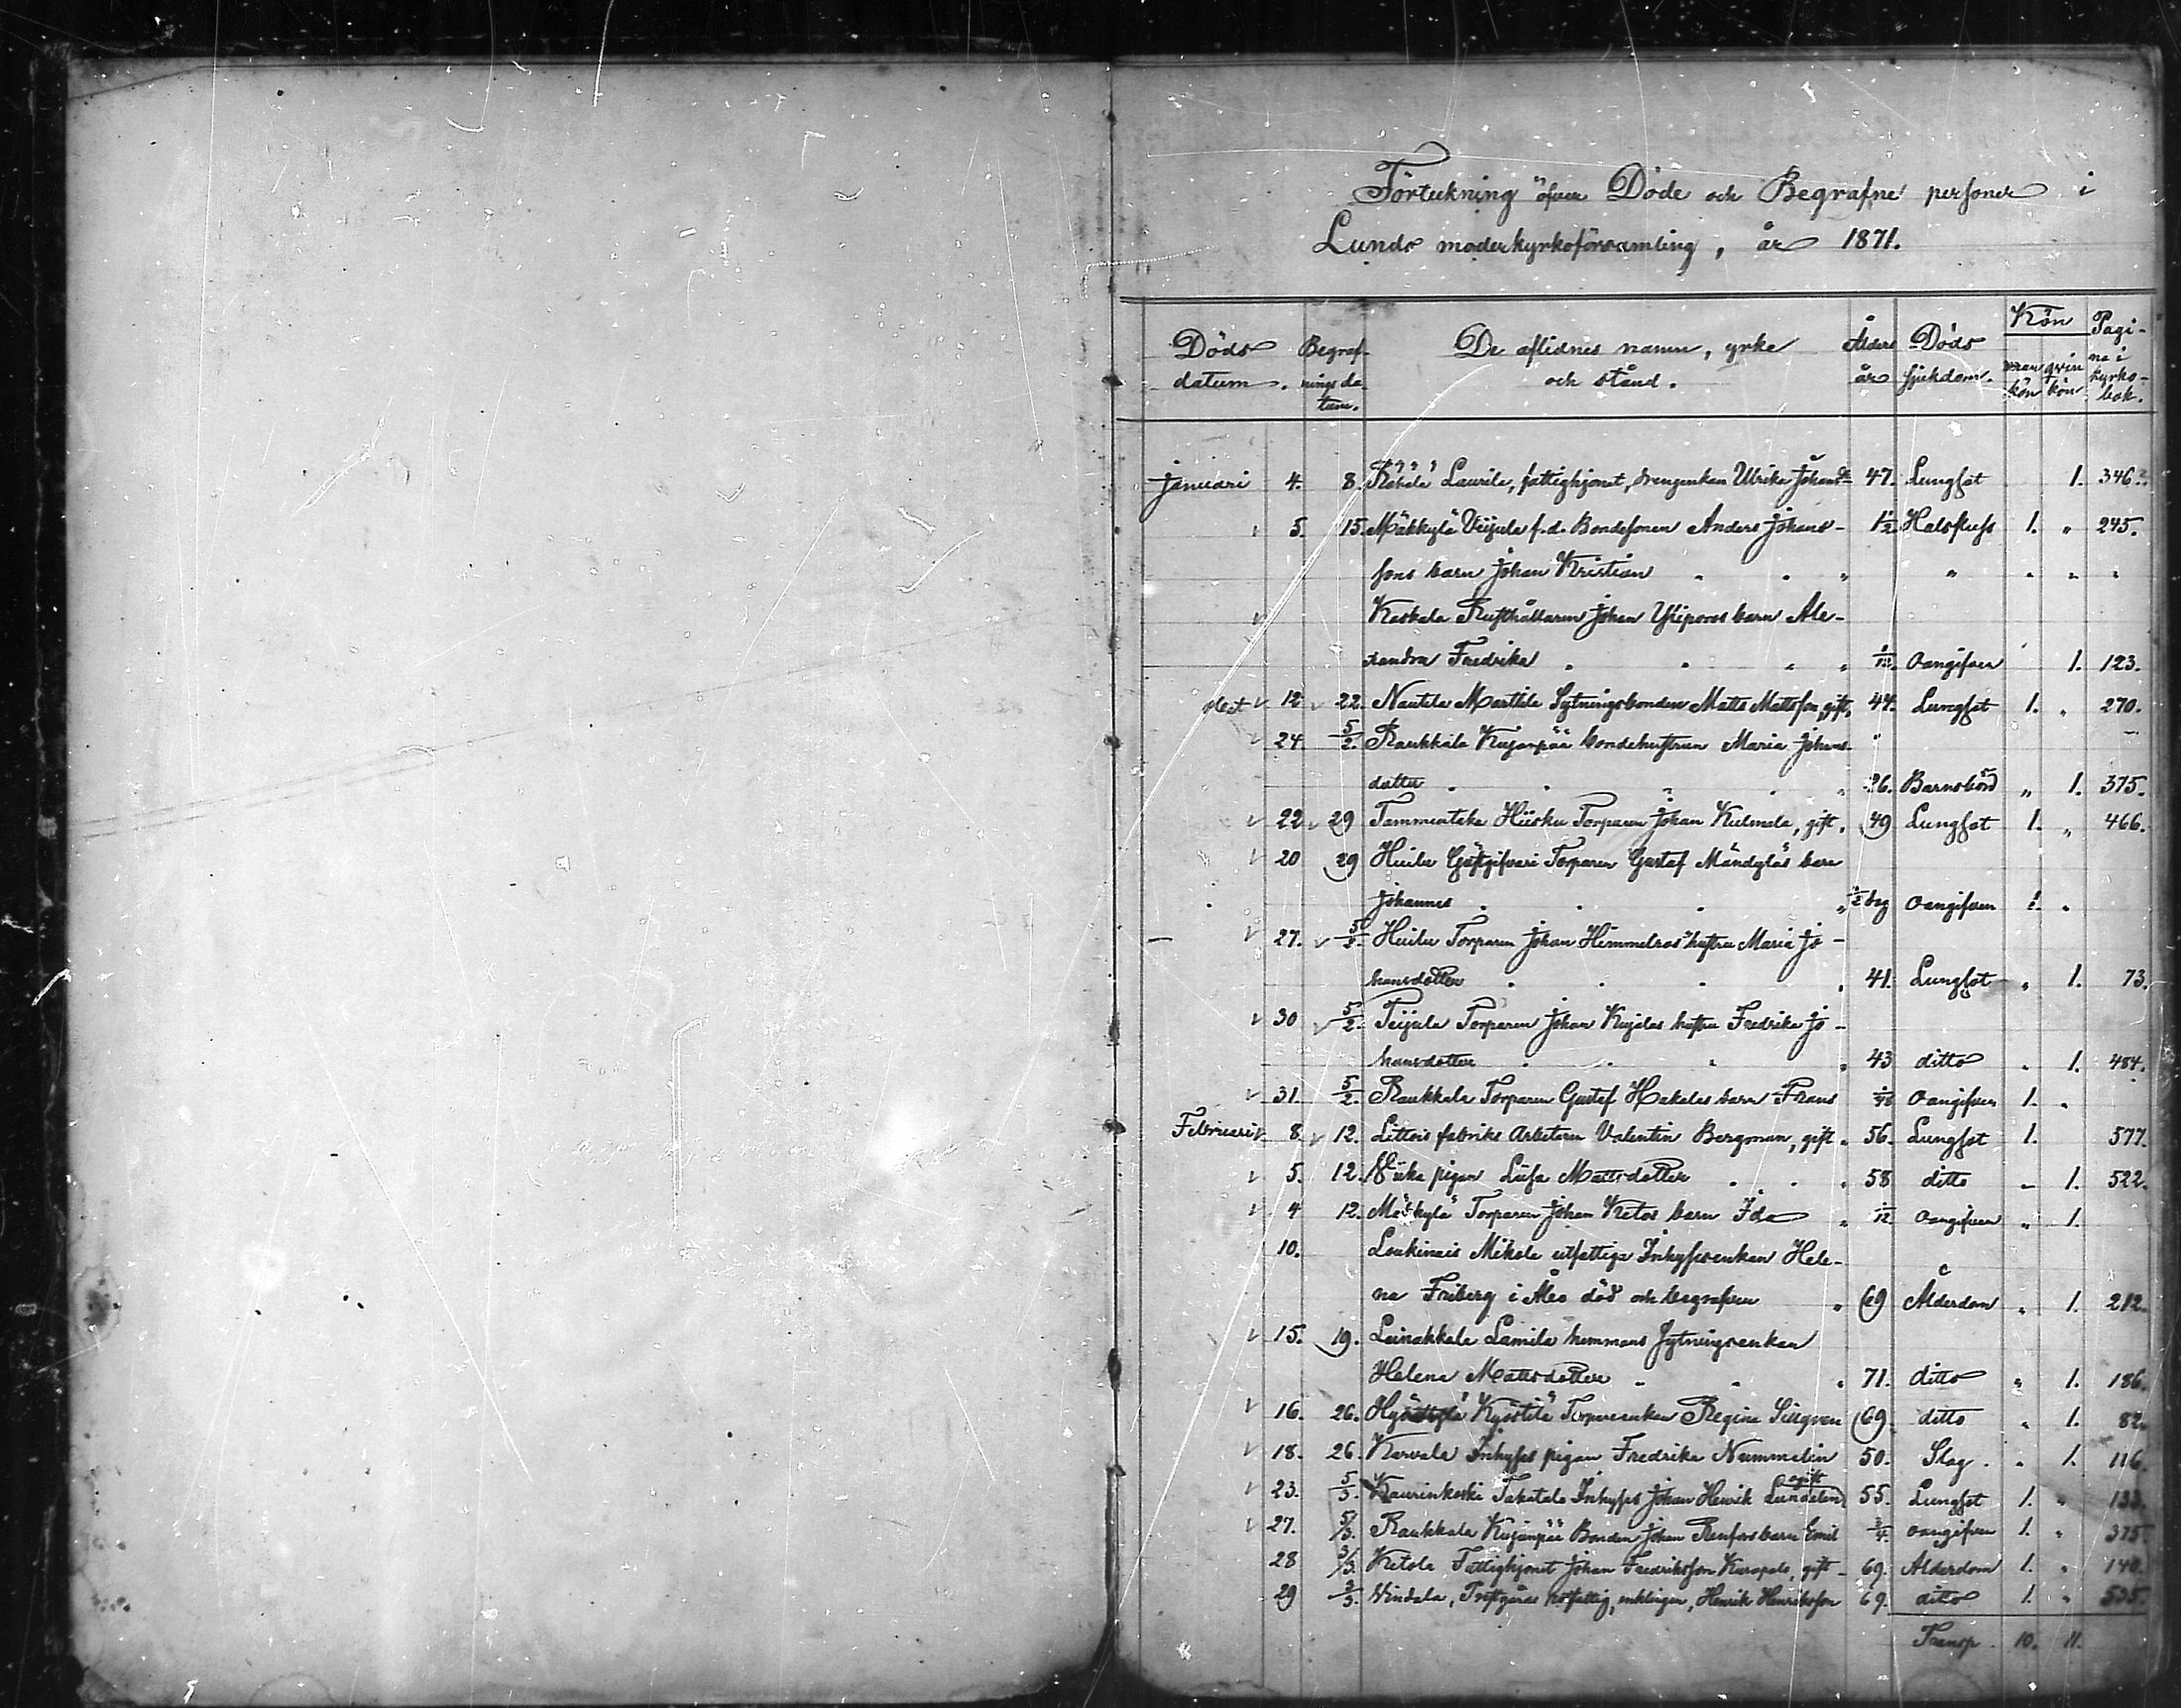 Förteckning öfver Döde och Begrafne personer i
Lundo moderkyrkoförsamling, år 1871.
Döds datum. Begrafnings datum. De aflidnes namn, yrke och stånd. Ålders år Döds sjukdom. Kön man kön qvin kön Pagina i kyrkobok.
Januari 4. 8. Laurila, fattighjonet, drengenkan Ulrika Johansdr 47. Lungsot 1. 346.
5. 15. Mäkkylä Veijula f.d. Bondesonen Anders Johans- 1½ Halsfluss 1. " 245.
sons barn Johan Kristian
Koskela Rusthållaren Johan Yliporos barn Ale-
xandra Fredrika oangifven 1. 123.
dext 12 22. Nautela Marttila Sytningsbonden Matts Mattsson, gift, 44. Lungsot 1. " 270.
24. 5/2. Raukkala Kujanpää bondehustrun Maria Johans-
dotter 26. Barnsbörd " 1. 375.
22 29 Tammentaka Hiisku Torparen Johan Kulmala, gift. 49 Lungsot 1. " 466.
20 29 Huila Gästgifveri Torparen Gustaf Mändyläs barn
Johannes ½ dag oangifven 1. "
27. 5/2. Huila Torparen Johan Himmelroos hustru Maria Jo-
hansdotter 41. Lungsot " 1. 73.
30 5/2. Teijula Torparen Johan Kujalas hustru Fredrika Jo-
hansdotter 43 ditto " 1. 484.
31. 5/2. Raukkala Torparen Gustaf Hakalas barn Frans oangifven 1. "
Februari 8. 12. Littois fabriks Arbetaren Valentin Bergman, gift 56. Lungsot 1. 577.
5. 12. pigan Lisa Mattsdotter 58 ditto " 1. 522.
4 12. Mäkkylä Torparen Johan Ketos barn Ida 1/12 oangifven " 1.
10. Loukinais Mikola utfattiga Inhyses enkan Hele-
na Friberg i Åbo död och begrafven 69 Ålderdom " 1. 212.
15. 19. Leinakkala Lamila hemmans Sytningsenkan
Helena Mattsdotter 71. ditto " 1. 186.
16. 26. Kyöstilä Torpareenkan Regina Sillgren 69. ditto " 1. 82.
18. 26. Karvala Inhyses pigan Fredrika Nummelin 50. Slag. " 1. 116.
23. 5/3. Kaurinkoski Takatalo Inhyses Johan Henrik Lundelin ogift 55. Lungsot 1. " 133.
27. 5/3. Raukkala Kujanpää Bonden Johan Renfors barn Emil ¾ oangifven 1. " 375.
28 5/3. Ketola Fattighjonet Johan Fredriksson Kurapalo, gift 69. Alderdom 1. " 140.
29 Vindala, utfattig, enklingen, Henrik Henriksson 69. ditto 1. " 535.
Transp. 10. 11.